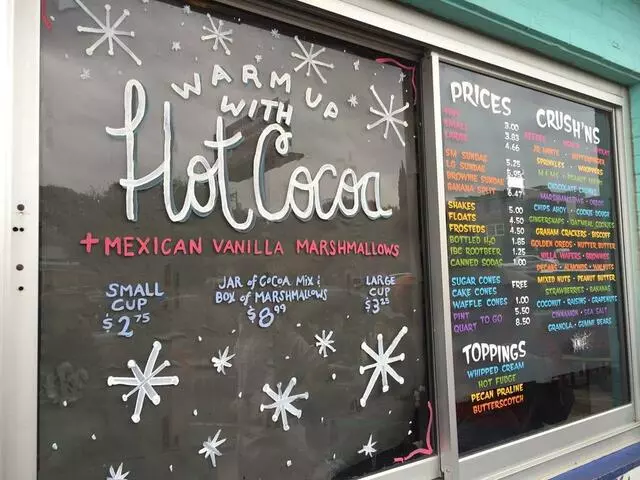 WARM UP
WITH
Hot Cocoa
+ MEXICAN VANILLA MARSHMALLOWS
SMALL
CUP
$2.75
JAR of COCOA MIX &
BOX of MARSHMALLOWS
$8.99
LARGE
CUP
$3.25
PRICES
3.00
SMALL 3.83
LARGE 4.66
SM SUNDAE 5.25
LG SUNDAE 5.95
BROWNIE SUNDAE
BANANA SPLIT 6.47
SHAKES 5.00
FLOATS 4.50
FROSTEDS 4.50
BOTTLED H2O 1.85
IBC ROOTBEER 1.25
CANNED SODAS 1.00
SUGAR CONES
CAKE CONES FREE
WAFFLE CONES 1.00
PINT 5.50
QUART TO GO 8.50
TOPPINGS
WHIPPED CREAM
HOT FUDGE
PECAN PRALINE
BUTTERSCOTCH
CRUSH'NS
REESES · HEATH
JR MINTS · BUTTERFINGER
SPRINKLES · WHOPPERS
M&MS · PEANUT M&MS
CHOCOLATE CHUNKS
MARSHMALLOWS · OREOS
CHIPS AHOY · COOKIE DOUGH
GINGERSNAPS · OATMEAL COOKIES
GRAHAM CRACKERS · BISCOFF
GOLDEN OREOS · NUTTER BUTTER
NILLA WAFERS · BROWNIES
PECANS · ALMONDS · WALNUTS
MIXED NUTS · PEANUT BUTTER
STRAWBERRIES · BANANAS
COCONUT · RAISINS · GRAPENUTS
CINNAMON · SEA SALT
GRANOLA · GUMMI BEARS